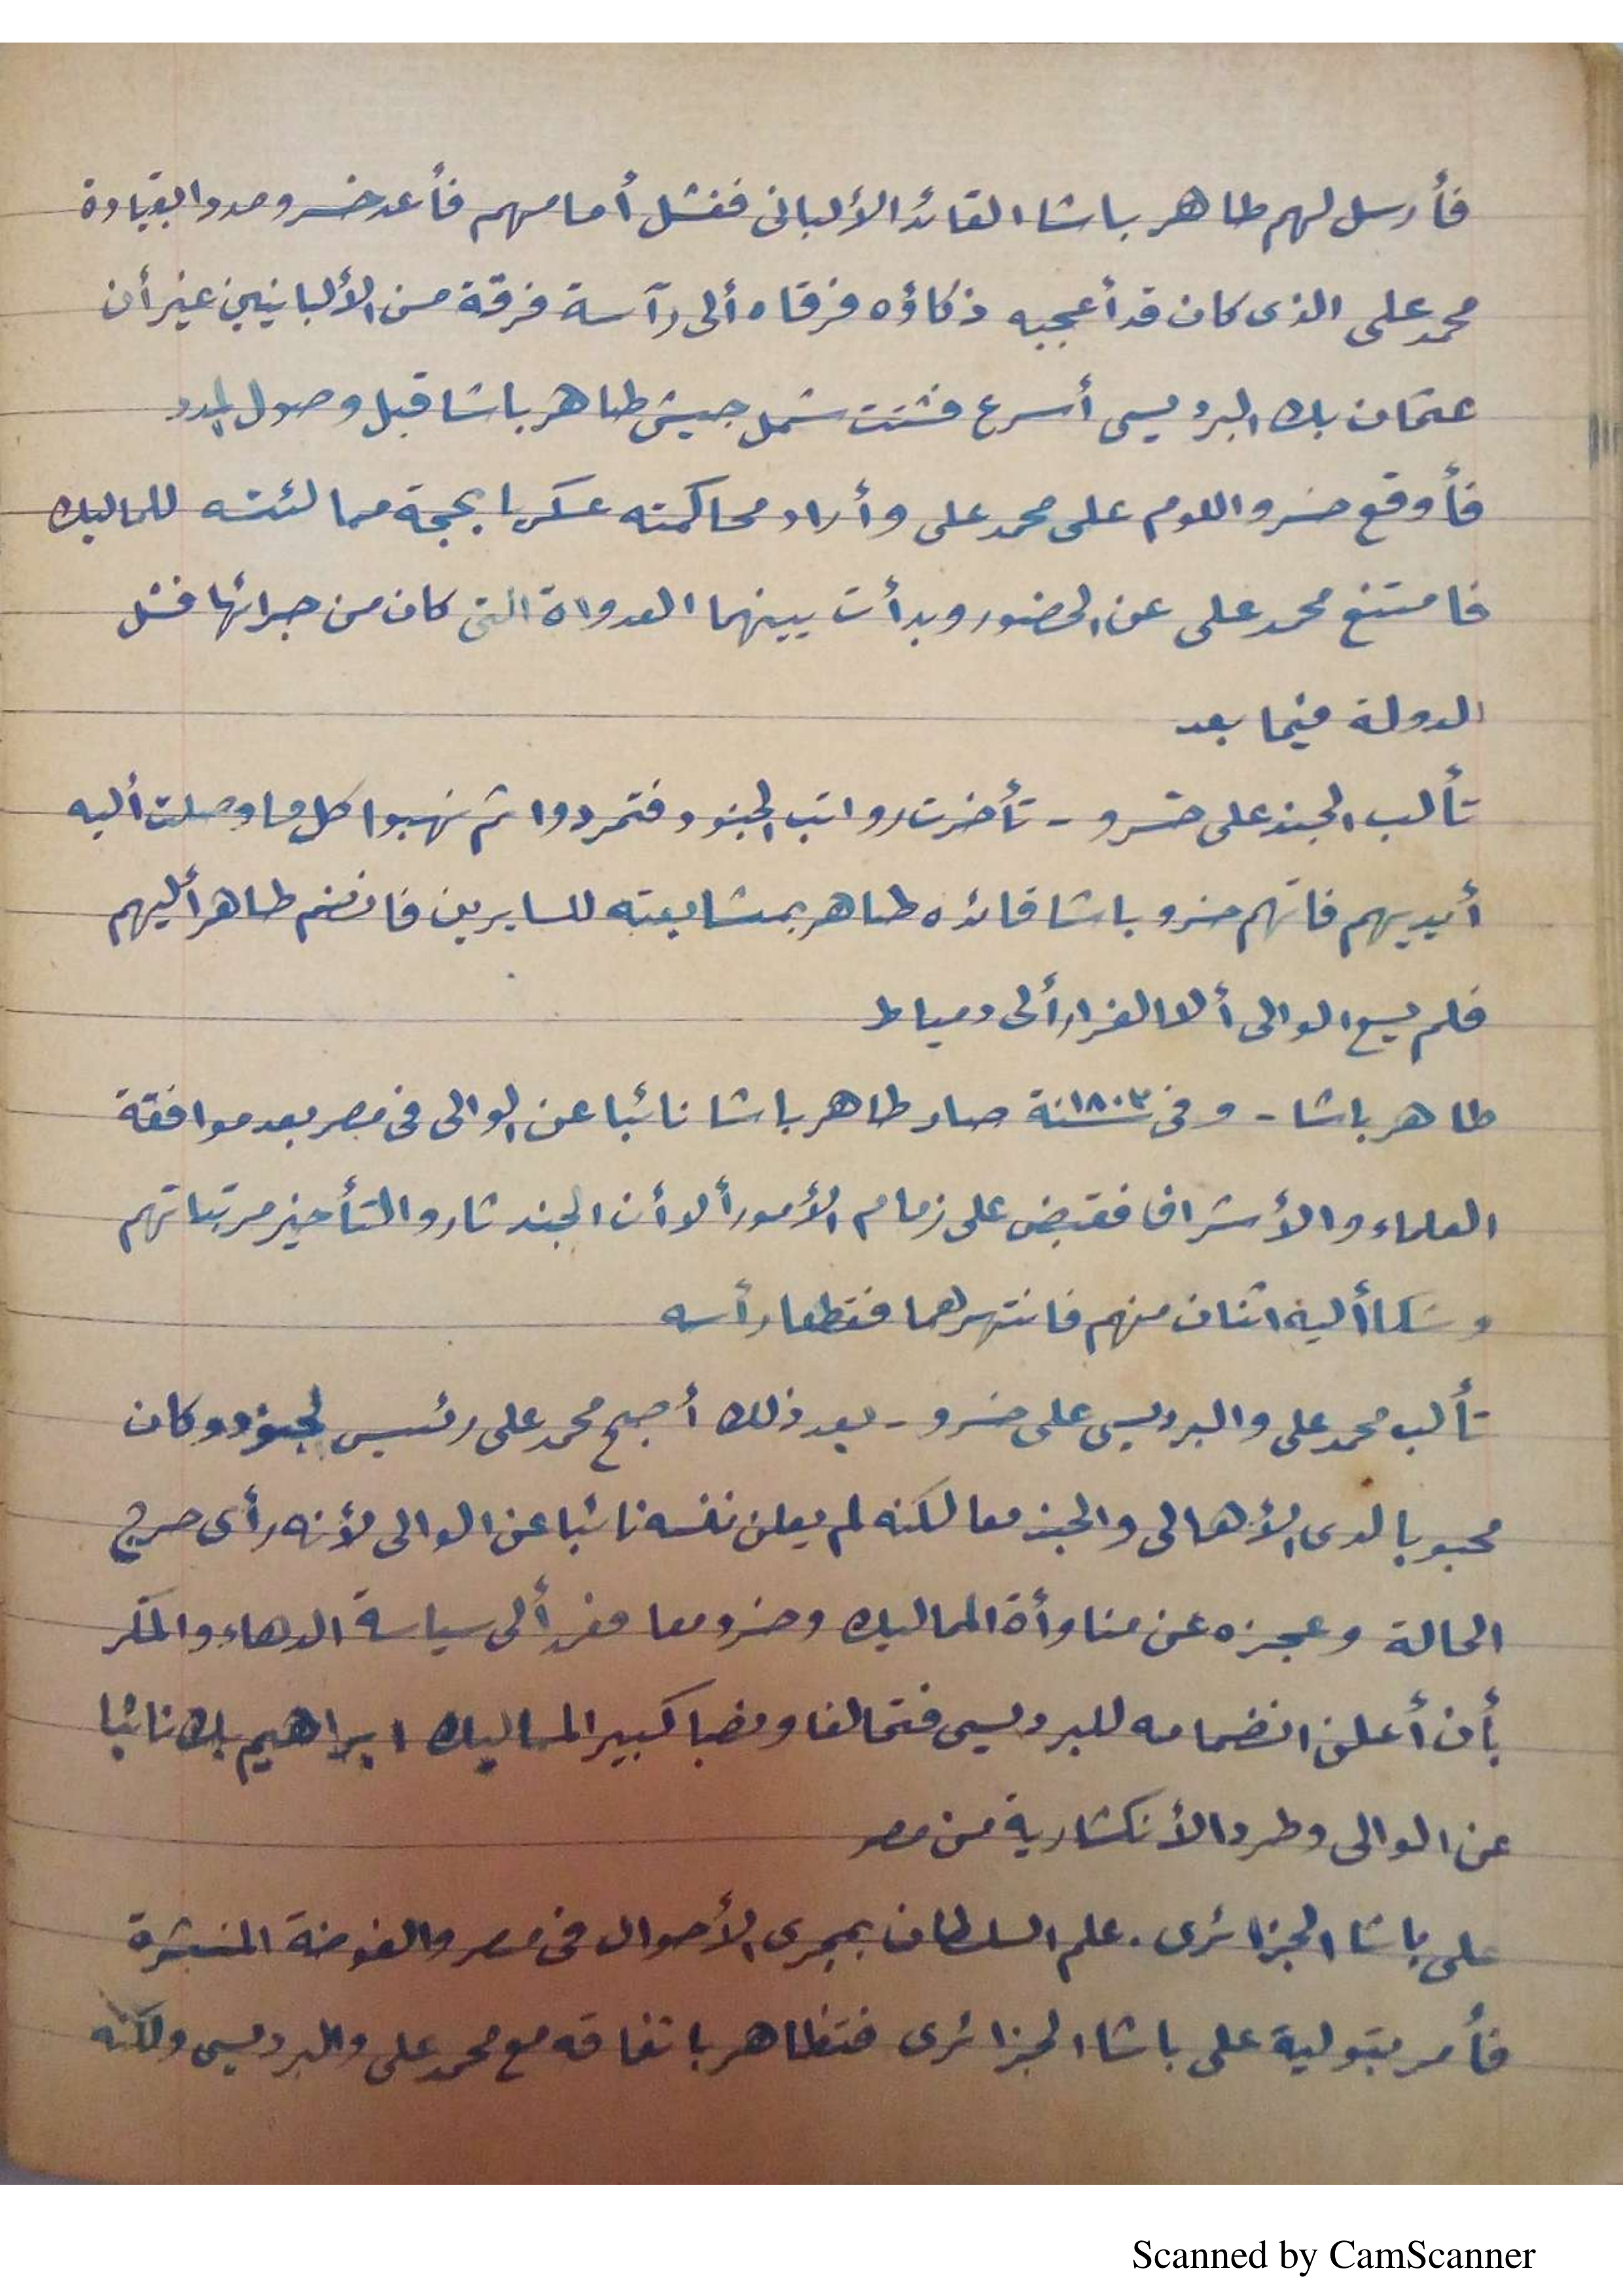 فأرسل لهم طاهر باشا القائد الألبانى ففشل أمامهم فأعد خسرو مددا بقيادة
محمد على الذى كان قد أعجبه ذكاؤه فرقاه ألى رآسة فرقة من الألبانيين غير أن
عثمان بك البرديسى أسرع فشتت شمل جيش طاهر باشا قبل وصول المدد
فأوقع خسرو اللوم على محمد على وأراد محاكمته عسكريا بحجة ممالئته للماليك
فامتنع محمد على عن الحضور وبدأت بينهما العدواة التى كان من جرائها فشل
الدولة فيما بعد
تألب الجند على خسرو - تأخرت رواتب الجنود فتمردوا ثم نهبوا كل ما وصلت أليه
أيديهم فاتهم خسرو باشا قائده طاهر بمشايعته للسايرين فانضم طاهر أليهم
فلم يسع الوالى ألا الفرار ألى دمياط
طاهر باشا - وفى سنة ١٨٠٣ صار طاهر باشا نائبا عن الوالى فى مصر بعد موافقة
العلماء والأشراف فقبض على زمام الأمور ألا أن الجند ثاروا لتأخير مرتباتهم
وشكا أليه اثنان منهم فانتهرهما فقطعا رأسه
تألب محمد على والبرديسى على خسرو - بعد ذلك أصبح محمد على رئيس الجنود وكان
محبوبا لدى الأهالى والجند معا لكنه لم يعلن نفسه نائبا عن الوالى لأنه رأى حرج
الحالة وعجزه عن مناوأة المماليك وخسرو معا ففر ألى سياسة الدهاء والمكر
بأن أعلن انضمامه للبرديسى فتحالفا ونصبا كبير المماليك ابراهيم بك نائبا
عن الوالى وطردا الأنكشارية من مصر
على باشا الجزائرى . علم السلطان بمجرى الأحوال فى مصر والفوضة المنتشرة
فأمر بتولية على باشا الجزائرى فتظاهر باتفاقه مع محمد على والبرديسى ولكنه
Scanned by CamScanner